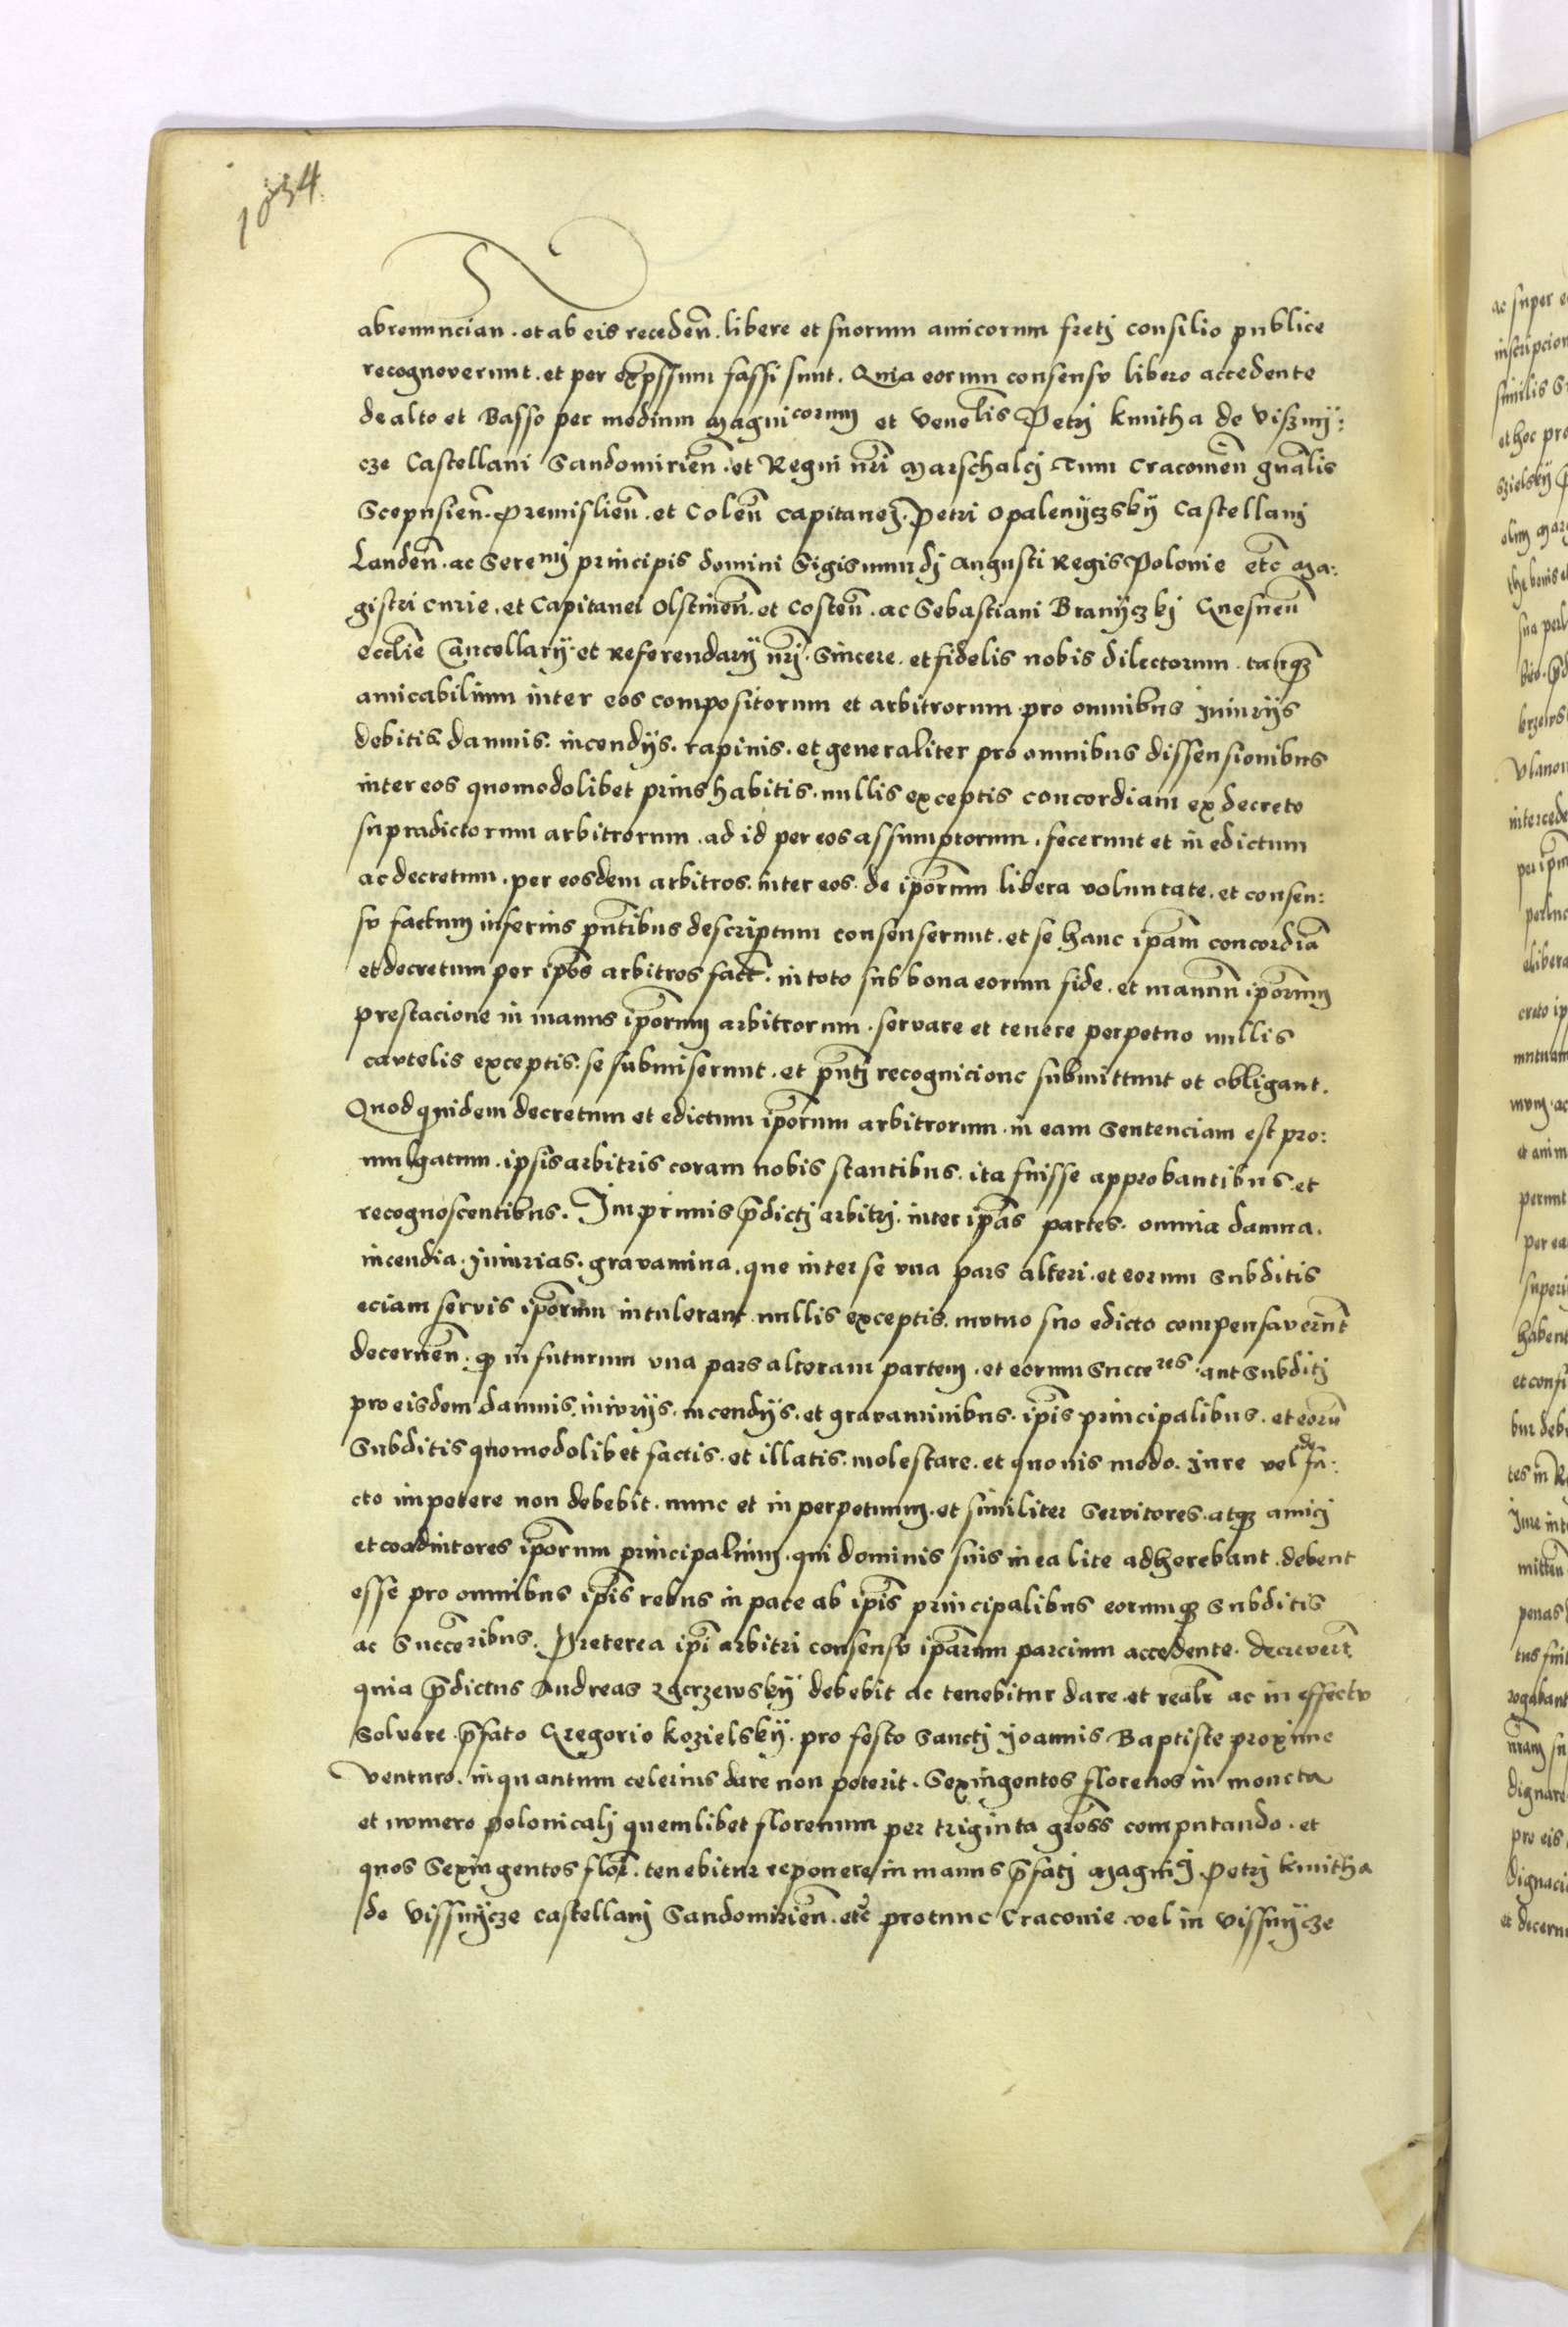 1534
abrenuncian. et ab eis receden̄. libere et suorum amicorum fretj consilio publice
recognoverunt. et per exp̄ssum fassi sunt. Quia eorum consensv libero accedente
de alto et Basso per medium Magnicorum et venelis Petrj kmitha de viszny:
cze Castellani Sandomirien̄. et Regni nr̄i Marschalcj Tum Cracouien̄ gn̄alis
Scepusien̄. Premislien̄. et Colen̄ capitanej. Petri Opalenyczsky Castellanj
Landen̄. ac Serenj principis domini Sigismundj Augusti Regis Polonie etc̄ Ma:
gistri curie. et Capitanei Olstinen̄. et Costen̄. ac Sebastiani Branyczkj Gnesnen̄
eccl̄ie Cancellarÿ. et Referendarÿ nr̄j. Sincere. et fidelis nobis dilectorum. tanq̄z
amicabilium inter eos compositorum et arbitrorum pro omnibus Iniurÿs
debitis damnis. incendÿs. rapinis. et generaliter pro omnibus dissensionibus
inter eos quomodolibet prius habitis. nullis exceptis concordiam ex decreto
supradictorum arbitrorum. ad id per eos assumptorum. fecerunt et in edictum
ac decretum. per eosdem arbitros. inter eos. de ip̄orum libera voluntate. et consen:
sv factum inferius pn̄tibus descriptum consenserunt. et se hanc ip̄am concordiā
et decretum per ip̄os arbitros fact̄. in toto sub bona eorum fide. et manuum ip̄orum
prestacione in manus ip̄orum arbitrorum. servare et tenere perpetuo nullis
cautelis exceptis. se submiserunt. et pn̄tj recognicione submittunt et obligant.
Quod quidem decretum et edictum ip̄orum arbitrorum. in eam Sentenciam est pro:
mulgatum. ipsis arbitris coram nobis stantibus. ita fuisse approbantibus. et
recognoscentibus. Imprimis p̄dictj arbitrj. inter ip̄as partes. omnia damna.
incendia. Iniurias. gravamina. que inter se vna pars alteri. et eorum subditis
eciam servis ip̄orum intulerant nullis exceptis. mvtuo suo edicto compensaverint̄
decernen̄. q̄ in futurum vna pars alteram partem. et eorum Succeres. aut Subditj
pro eisdem damnis. iniurÿs. incendÿs. et gravaminibus. ip̄is principalibus. et eorū
Subditis quomodolibet factis. et illatis. molestare. et quouis modo. Iure vel de fa:
cto impetere non debebit. nunc et in perpetuum. et similiter Servitores. atq̄z amicj
et coadiutores ip̄orum principalium. qui dominis suis in ea lite adherebant. debent
esse pro omnibus ip̄is rebus in pace ab ip̄is principalibus eorumq̄z Subditis
ac Succeribus. Preterea ip̄i arbitri consensv ip̄arum parcium accedente. decrevert̄
quia p̄dictus Andreas Zgerzewsky debebit ac tenebitur dare et realr̄ ac in effectv
Solvere p̄fato Gregorio kozielsky. pro festo Sanctj Joannis Baptiste proxime
venturo. inquantum celerius dare non poterit. Sexingentos florenos in moneta
et nvmero polonicalj quemlibet florenum per triginta gross̄ computando. et
quos Sexingentos flor̄. tenebitur reponere in manus p̄fatj Magnicj Petrj kmitha
de Vissnycze castellanj Sandomirien̄. etc̄ protunc Craconie vel in Vissnycze